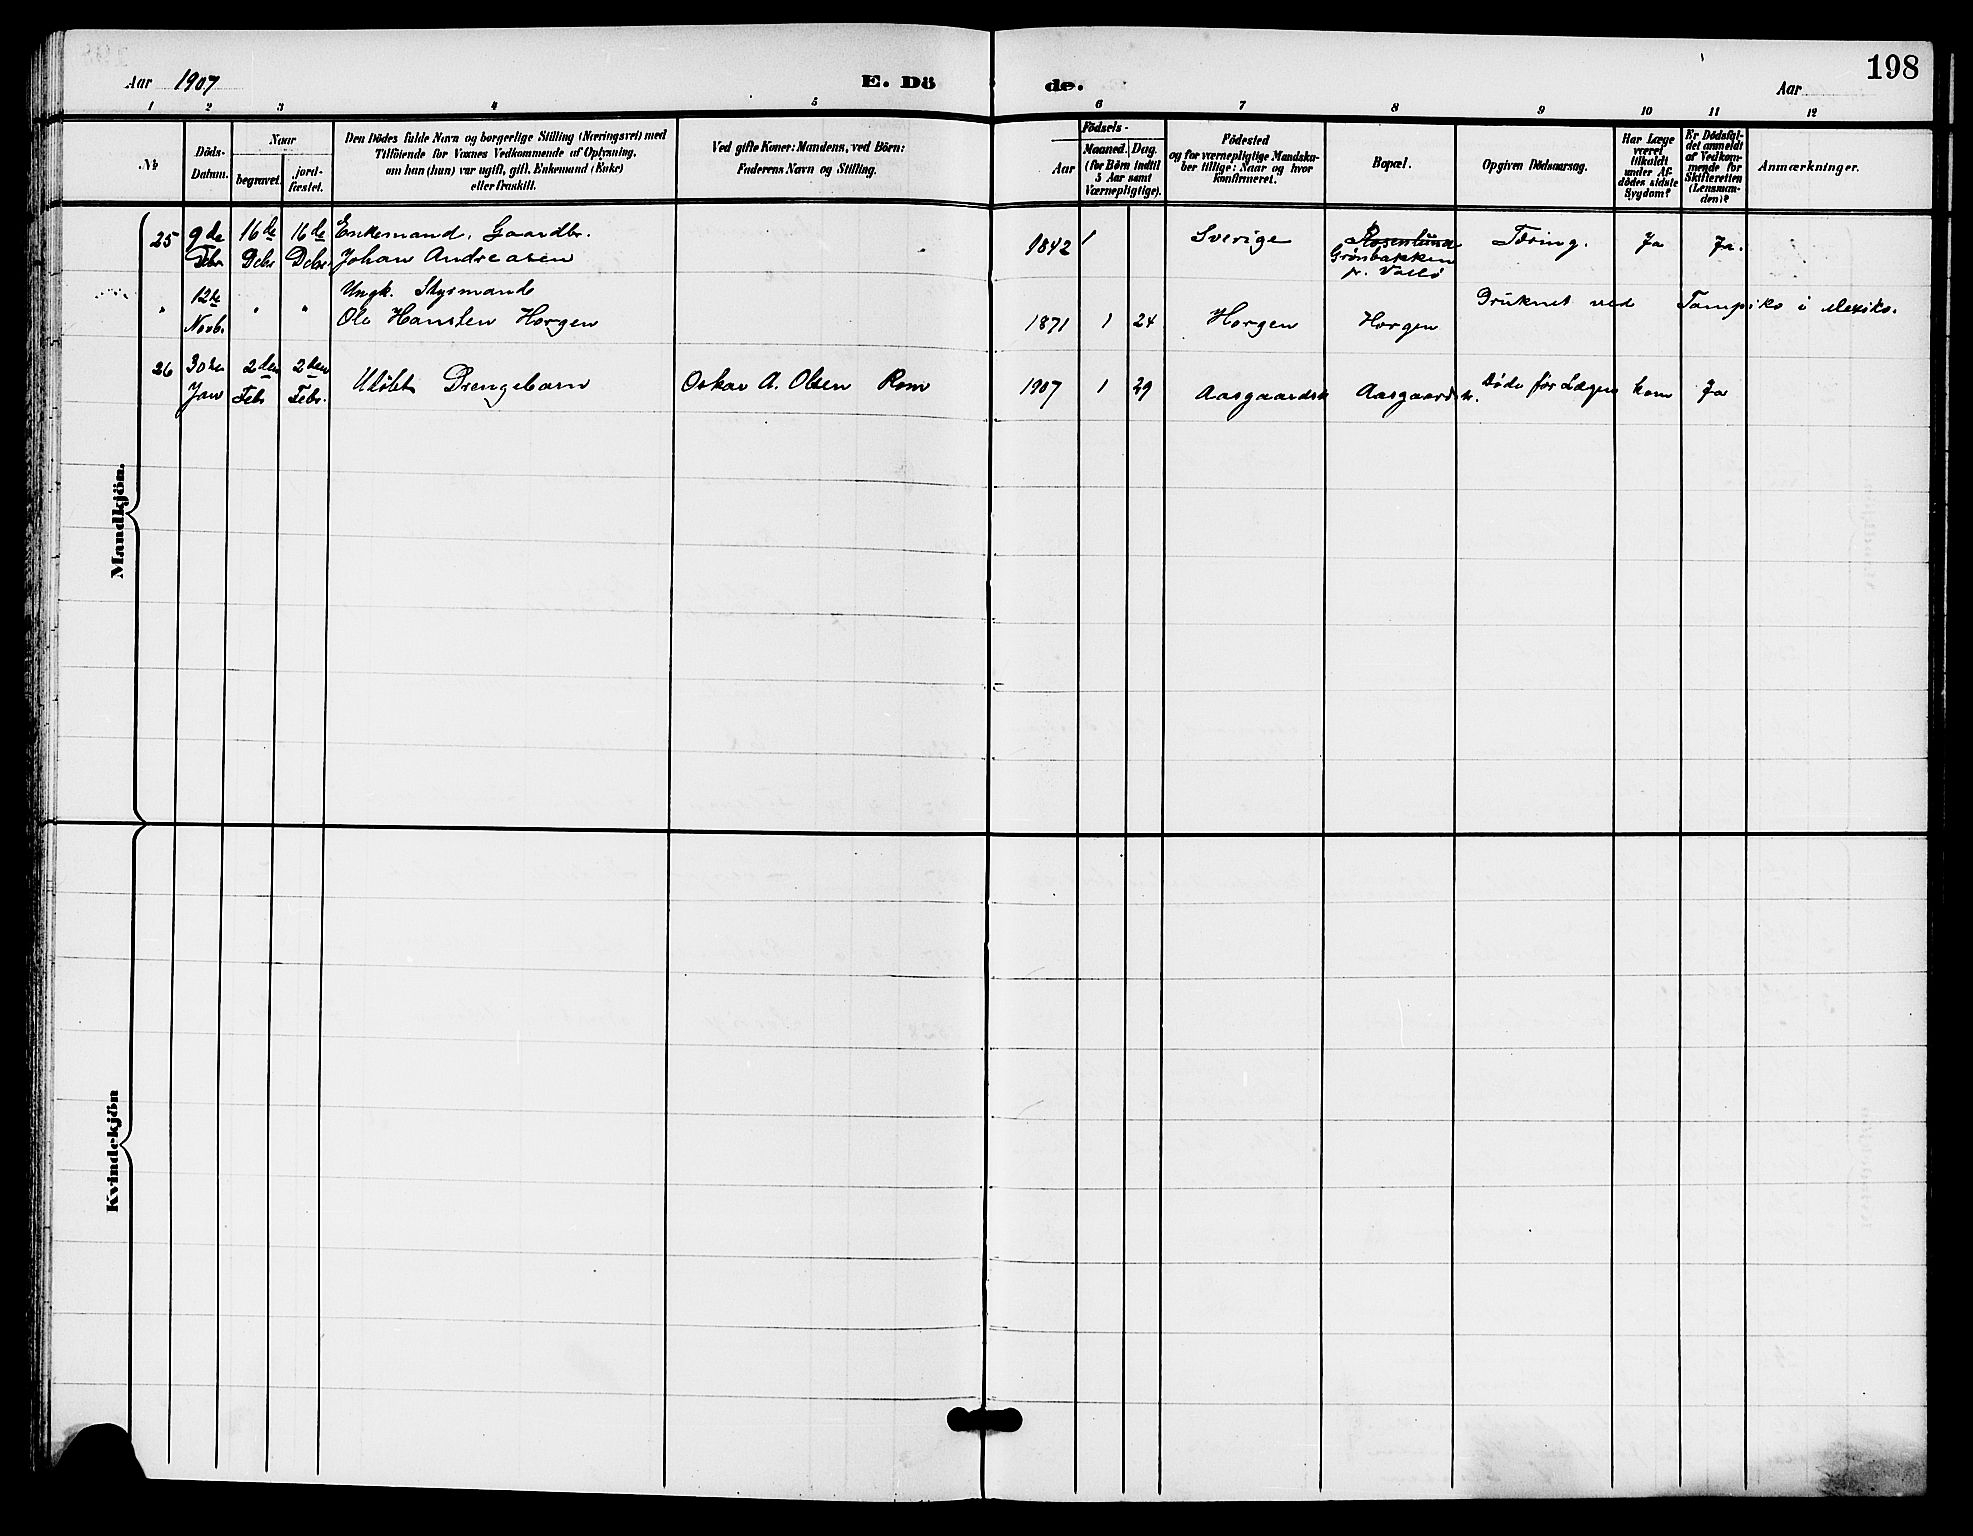 198
Aar 1907
E. Dö
de.
Aar
1 2 3 4 5 6 7 8 9 10 11 12
No.
Döds-
Datum.
Naar
begravet.
jord-
fæstet.
Den Dödes fulde Navn og borgerlige Stilling (Næringsvei) med
Tilföiende for Voxnes Vedkommende af Oplysning,
om han (hun) var ugift, gift, Enkemand (Enke)
eller fraskilt.
Ved gifte Koner: Mandens, ved Börn:
Faderens Navn og Stilling.
Födsels-
Aar
Maaned. Dag.
(for Börn indtil
5 Aar samt
Værnepligtige).
Födested
og for værnepligtige Mandska-
ber tillige: Naar og hvor
konfirmeret.
Bopæl.
Opgiven Dödsaarsag.
Har Læge
været
tilkaldt
under Af-
dödes sidste
Sygdom?
Er Dödsfal-
det anmeldt
af Vedkom-
mende for
Skifteretten
(Lensman-
den)?
Anmærkninger.
Mandkjön.
25 9de 16de 16de Enkemand, Gaardbr.
Debr Debr Johan Andreasen 1842 Sverige Rosenlund Tæring. Ja Ja.
Grönbakken
p. Vallö
" 12te " " Ungk. Stysmand
Novbr Ole Hansten Horgen 1871 1 24 Horgen Horgen Druknet ved Tampiko i Mexiko.
26 30te 2den 2den
Jan Febr Febr. Udöbt Drengebarn Oskar A. Olsen Rom 1907 1 29 Aasgaardst Aasgaardst. Döde før Lægen kom Ja
Kvindekjön